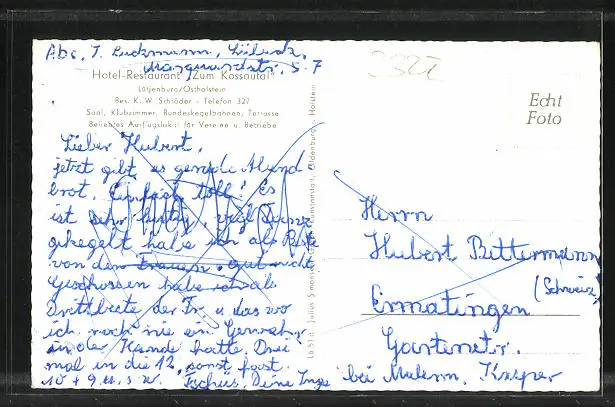 Abs. I. Luckmann, Lübeck,
Marquardstr. 5-7
Hotel-Restaurant "Zum Kossautal"
Lütjenburg/Ostholstein
Bes. K. W. Schröder - Telefon 327
Saal, Klubzimmer, Bundeskegelbahnen, Terrasse
Beliebtes Ausflugslokal für Vereine u. Betriebe
Lieber Hubert,
jetzt gibt es gerade Abend
brot. Einfach toll! Es
ist sehr lustig,
gekegelt habe ich als Beste
von den Frauen, gut nicht
Geschossen habe ich als
Drittbeste der Fr. u. das wo
ich noch nie ein Gewehr
in der Hand hatte. Drei
mal in die 12, sonst fast
10 + 9 u.s.w. Tschüs, Deine Inge
3322
Echt
Foto
Herrn
Hubert Bittermann
(Schweiz)
Ermatingen
Gartenstr.
bei Malerm. Kasper
Julius Simonsen, Oldenburg Holstein